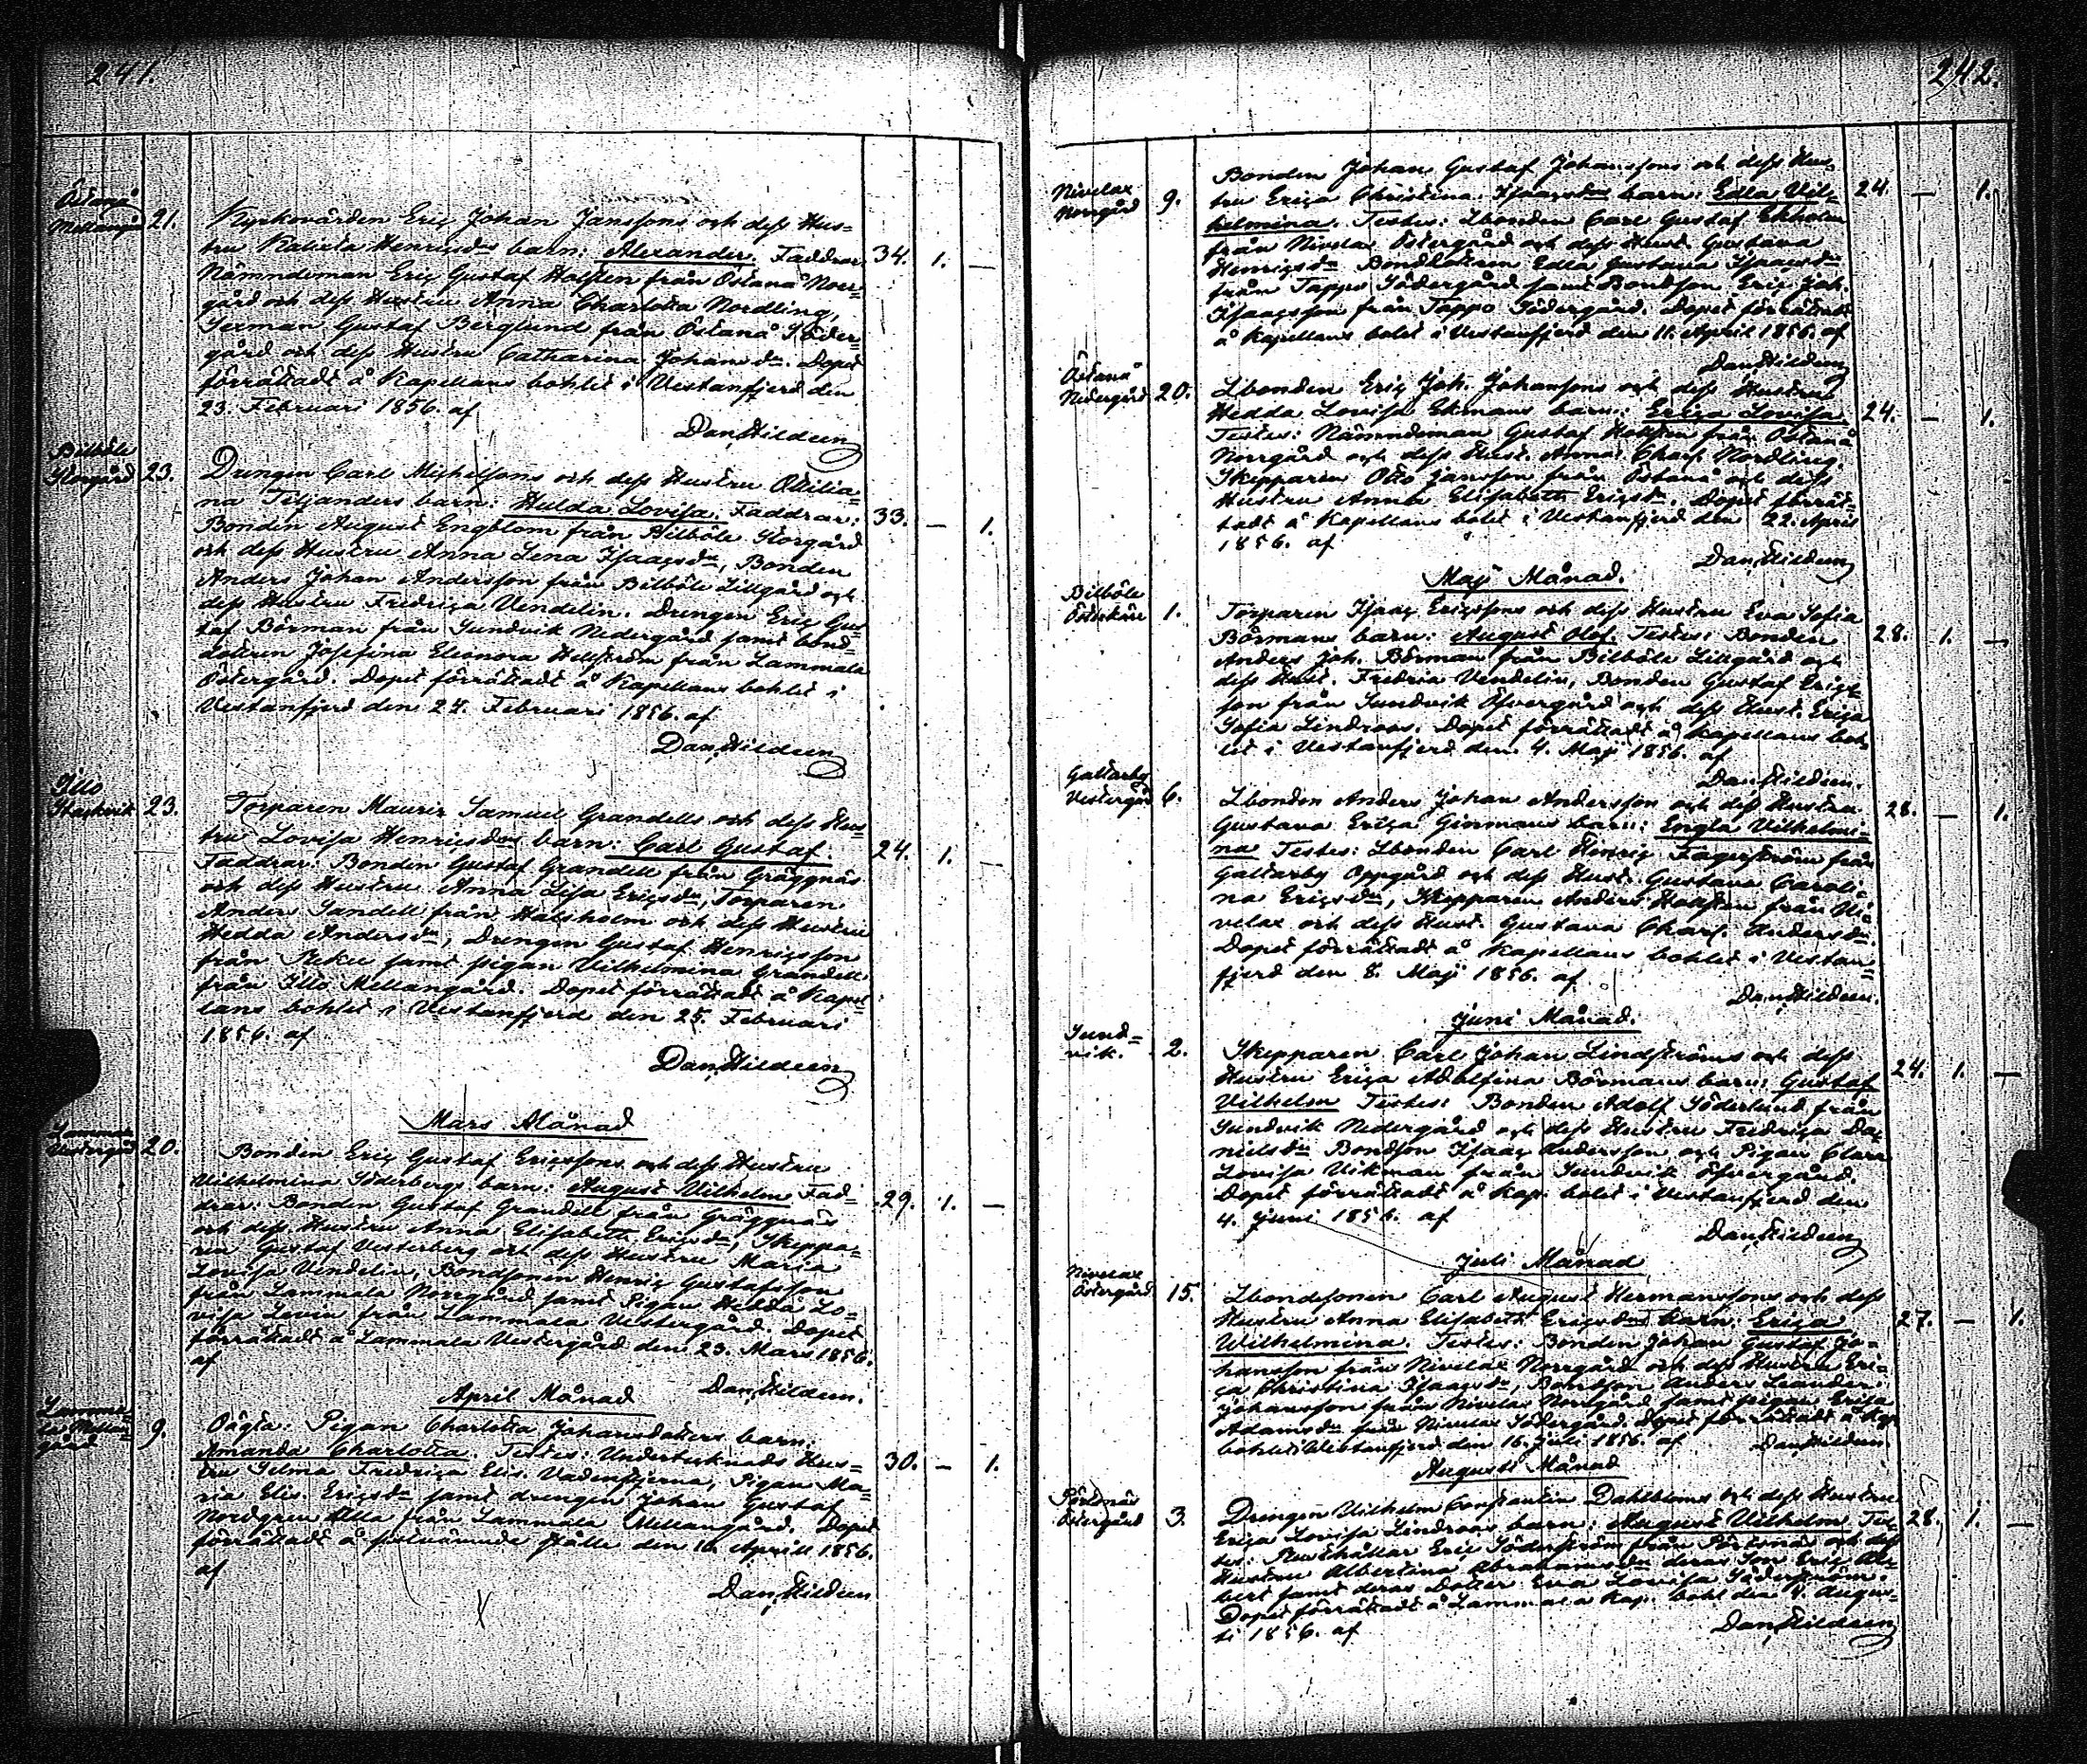 241.
Östanå
Mellangård 21.
Kyrkovärden Eric Johan Janssons och dess Hus=
tru Henricsdrs barn: Alexander. Faddrar: 34. 1. —
Nämndeman Eric Gustaf Holsten från Östanå Norr=
gård och dess Hustru Anna Charlotta Nordling,
Sexman Gustaf Berglund från Östanå Söder=
gård och dess Hustru Catharina Johansdr. Dopet
förrättadt å Kapellans bohlet i Vestanfjerd den
23. Februari 1856. af
Dan. Hildeen
Bilböle
Storgård 23.
Drengen Carl Michelssons och dess Hustru Ottilia=
na barn: Hulda Lovisa. Faddrar: 33. — 1.
Bonden August Engblom från Bilböle Storgård
och dess Hustru Anna Lena Isaacsdr, Bonden
Anders Johan Andersson från Bilböle Lillgård och
dess Hustru Fredrica Vendelin. Drengen Eric Gus=
taf Börman från Sundvik Nedergård samt bond=
dottren Josefina Eleonora Hellström från Lammala
Östergård. Dopet förrättadt å Kapellans bohlet i
Vestanfjerd den 24. Februari 1856. af
Dan. Hildeen
Illo
23.
Torparen Maurits Samuel Grandells och dess Hus=
tru Lovisa Henricsdrs barn: Carl Gustaf. 24. 1. —
Faddrar: Bonden Gustaf Grandell från Gräggnäs
och dess Hustru Anna Lisa Ericsdr, Torparen
Anders Sandell från Halsholm och dess Hustru
Hedda Andersdr, Drengen Gustaf Henricsson
från samt pigan Vilhelmina Grandell
från Illo Mellangård. Dopet förrättadt å Kapel=
lans bohlet i Vestanfjerd den 25. Februari
1856. af
Dan. Hildeen
Mars Månad
Lammala
Vestergård 20.
Bonden Eric Gustaf Ericssons och dess Hustru
Vilhelmina Söderbergs barn: August Vilhelm. Fad= 29. 1. —
drar: Bonden Gustaf Grandell från Gräggnäs
och dess Hustru Anna Elisabeth Ericsdr, Skeppa=
ren Gustaf Vesterberg och dess Hustru Maria
Lovisa Vendelin, Bondsonen Henric Gustafsson
från Lammala Norrgård samt Pigan Hedda Lo=
visa från Lammala Vestergård. Dopet
förrättadt å Lammala Vestergård den 23. Mars 1856.
af
Dan. Hildeen.
April Månad
Lamma=
la Mellan=
gård 9.
Oägta: Pigan Charlotta Johansdotters barn:
Amanda Charlotta. Testes: Undertecknads Hus= 30. — 1.
tru Selma Fredrica Elis. Vadenstjerna, Pigan Ma=
ria Elis. Ericsdr samt drengen Johan Gustaf
Nordgren Alla från Lammala Mellangård. Dopet
förrättadt å förenämnde ställe den 10. April 1856.
af
Dan. Hildeen
242.
Nivelax
Norrgård 9.
Bonden Johan Gustaf Johanssons och dess Hus=
tru Erica Christina Isaacsdrs barn: Edla Vil= 24. — 1.
helmina. Testes: Lbonden Carl Gustaf Ekholm
från Nivelax Östergård och dess Hust. Gustava
Henricsdr Bonddottren Edla Gustava Isaacsdr
från Tappo Södergård samt Bondson Eric Joh.
Isaacsson från Tappo Södergård. Dopet förrättadt
å Kapellans bolet i Vestanfjerd den 11. April 1856. af
Dan. Hildeen
Östanå
Nedergård 20.
Lbonden Eric Joh. Johanssons och dess Hustru
Hedda Lovisa Ekmans barn: Erica Lovisa 24. — 1.
Testes: Nämndeman Gustaf Holsten från Östanå
Norrgård och dess Hust. Anna Charl. Nordling.
Skepparen Otto Jansson från Östanå och dess
Hustru Anna Elisabeth Ericsdr. Dopet förrät=
tadt å Kapellans bolet i Vestanfjerd den 22. April
1856. af
Dan. Hildeen
Maj Månad.
Bilböle
1.
Torparen Isaac Ericssons och dess Hustru Eva Sofia
Börmans barn: August Olof. Testes: Bonden 28. 1. —
Anders Joh. Börman från Bilböle Lillgård och
dess Hust. Fredrica Vendelin, Bonden Gustaf Erics=
son från Sundvik Öfvergård och dess Hust. Erica
Sofia Lindroos. Dopet förrättadt å Kapellans boh=
let i Vestanfjerd den 4. Maj 1856. af
Dan. Hildeen.
Galtarby
Vestergård 6.
Lbonden Anders Johan Andersson och dess Hustru
Gustava Erica Ginmans barn: Engla Vilhelmi= 28. — 1.
na Testes: Lbonden Carl Henric Fagerström från
Galtarby Oppgård och dess Hust. Gustava Caroli=
na Ericsdr, Skepparen Anders Holsten från Ni=
velax och dess Hust. Gustava Charl. Andersdr.
Dopet förrättadt å Kapellans bohlet i Vestan=
fjerd den 8. Maj 1856. af
Dan. Hildeen.
Juni Månad.
Sund=
vik. 2.
Skepparen Carl Johan Lindströms och dess
Hustru Erica Adolfina Börmans barn: Gustaf 24. 1. —
Vilhelm Testes: Bonden Adolf Söderlund från
Sundvik Nedergård och dess Hustru Fredrica Da=
nielsdr Bondson Isaac Andersson och Pigan Clara
Lovisa Vikman från Sundvik Öfvergård.
Dopet förrättadt å Kap. bolet i Vestanfjerd den
4. Juni 1856. af
Dan. Hildeen
Juli Månad
Nivelax
Östergård 15.
Lbondesonen Carl August Hermanssons och dess
Hustru Anna Elisabeth Ericsdrs barn: Erica 27. — 1.
Wilhelmina. Testes: Bonden Johan Gustaf Jo=
hansson från Nivelax Norrgård och dess Hustru Eri=
ca Christina Isaacsdr, Bondson Anders Leander
Johansson från Nivelax Norrgård samt pigan Erica
Adamsdr från Nivelax Södergård. Dopet förrättadt å Kap.
bohlet i Vestanfjerd den 16. Juli 1856. af Dan. Hildeen
Augusti Månad
Pörtsnäs
Östergård 3.
Drengen Vilhelm Constantin Dahlbloms och dess Hustru
Erica Lovisa Lindroos barn: August Vilhelm Tes= 28. 1. —
tes: Rusthållar Eric Söderström från Pörtsnäs och dess
Hustru Albertina Abrahamsdr deras Son Eric Al=
bert samt deras Dotter Eva Lovisa Söderström.
Dopet förrättadt å Lammala Kap. bohl den 4. Augus=
ti 1856. af
Dan. Hildeen